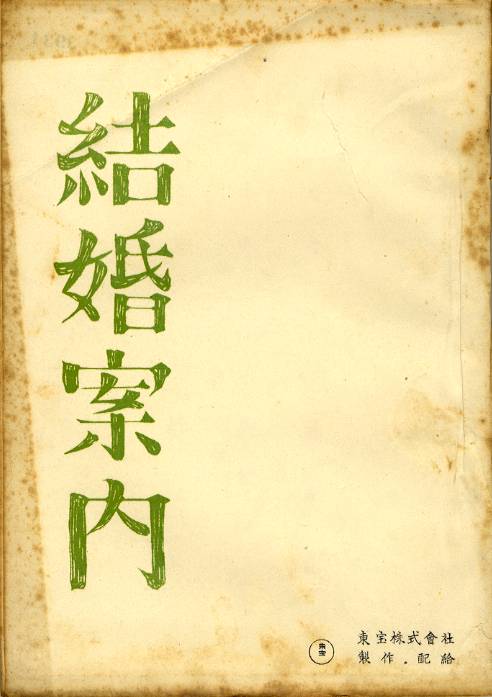 結婚案内
東宝
東宝株式會社
製作.配給